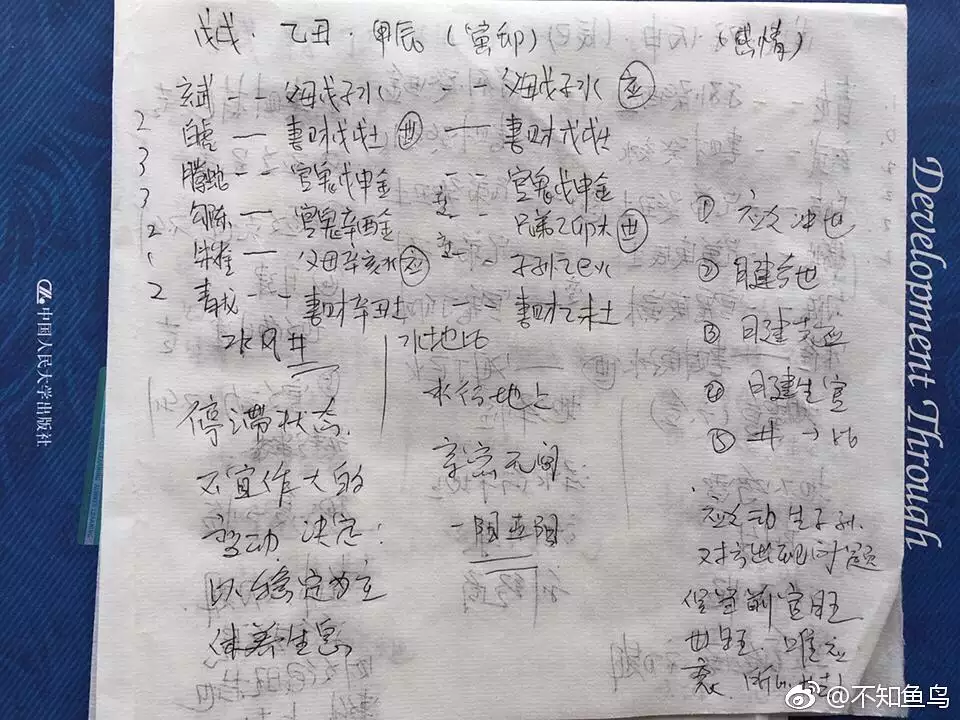 戊戌·乙丑·甲辰(寅卯) (感情)
玄武 — — 父母戊子水 — — 父母戊子水 应
2 白虎 — 妻财戊戌土 世 — 妻财戊戌土
3 腾蛇 — — 官鬼戊申金 — — 官鬼戊申金
3 勾陈 — 官鬼辛酉金 变 — — 兄弟乙卯木 世
2 朱雀 — 父母辛亥水 应 变 — — 子孙乙巳火
2 青龙 — — 妻财辛丑土 — — 妻财乙未土
水风井
停滞状态.
不宜作大的
变动 决定:
以稳定为主
休养生息
水地比
水行地上
亲密无间
一阳五阴
① 应爻冲世
② 日建合世
③ 日建克应
④ 日建生官
⑤ 井→比
应爻动生子孙.
对方出现问题
官旺
世旺. 唯应
衰.
中国人民大学出版社
Development Through
@不知鱼鸟